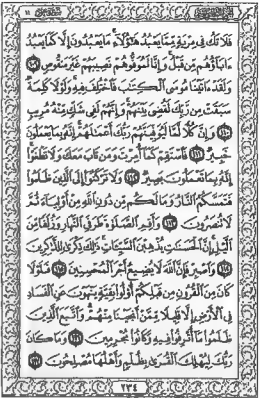 فَلَا تَكُ فِي مِرْيَةٍ مِمَّا يَعْبُدُ هَٰؤُلَاءِ مَا يَعْبُدُونَ إِلَّا كَمَا يَعْبُدُ
ءَابَاؤُهُمْ مِنْ قَبْلُ وَإِنَّا لَمُوَفُّوهُمْ نَصِيبَهُمْ غَيْرَ مَنْقُوصٍ ١٠٩
وَلَقَدْ ءَاتَيْنَا مُوسَى الْكِتَابَ فَاخْتُلِفَ فِيهِ وَلَوْلَا كَلِمَةٌ
سَبَقَتْ مِنْ رَبِّكَ لَقُضِيَ بَيْنَهُمْ وَإِنَّهُمْ لَفِي شَكٍّ مِنْهُ مُرِيبٍ
١١٠ وَإِنَّ كُلًّا لَمَّا لَيُوَفِّيَنَّهُمْ رَبُّكَ أَعْمَالَهُمْ إِنَّهُ بِمَا يَعْمَلُونَ
خَبِيرٌ ١١١ فَاسْتَقِمْ كَمَا أُمِرْتَ وَمَنْ تَابَ مَعَكَ وَلَا تَطْغَوْا
إِنَّهُ بِمَا تَعْمَلُونَ بَصِيرٌ ١١٢ وَلَا تَرْكَنُوا إِلَى الَّذِينَ ظَلَمُوا
فَتَمَسَّكُمُ النَّارُ وَمَا لَكُمْ مِنْ دُونِ اللَّهِ مِنْ أَوْلِيَاءَ ثُمَّ
لَا تُنْصَرُونَ ١١٣ وَأَقِمِ الصَّلَوٰةَ طَرَفَيِ النَّهَارِ وَزُلَفًا مِنَ
الَّيْلِ إِنَّ الْحَسَنَاتِ يُذْهِبْنَ السَّيِّئَاتِ ذَٰلِكَ ذِكْرَىٰ لِلذَّاكِرِينَ
١١٤ وَاصْبِرْ فَإِنَّ اللَّهَ لَا يُضِيعُ أَجْرَ الْمُحْسِنِينَ ١١٥ فَلَوْلَا
كَانَ مِنَ الْقُرُونِ مِنْ قَبْلِكُمْ أُولُوا بَقِيَّةٍ يَنْهَوْنَ عَنِ الْفَسَادِ
فِي الْأَرْضِ إِلَّا قَلِيلًا مِمَّنْ أَنْجَيْنَا مِنْهُمْ وَاتَّبَعَ الَّذِينَ
ظَلَمُوا مَا أُتْرِفُوا فِيهِ وَكَانُوا مُجْرِمِينَ ١١٦ وَمَا كَانَ
رَبُّكَ لِيُهْلِكَ الْقُرَىٰ بِظُلْمٍ وَأَهْلُهَا مُصْلِحُونَ ١١٧
٢٣٤